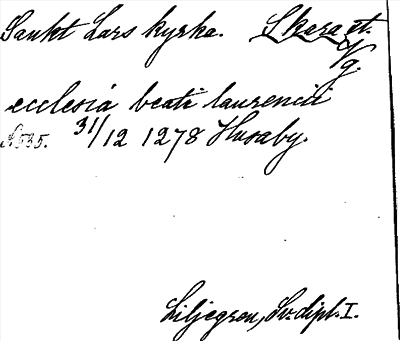 Sankt Lars kyrka. Skara st.
Vg.
ecclesia beati laurencii
N 535. 31/12 1278 Husaby.
Liljegren, Sv. dipl. I.